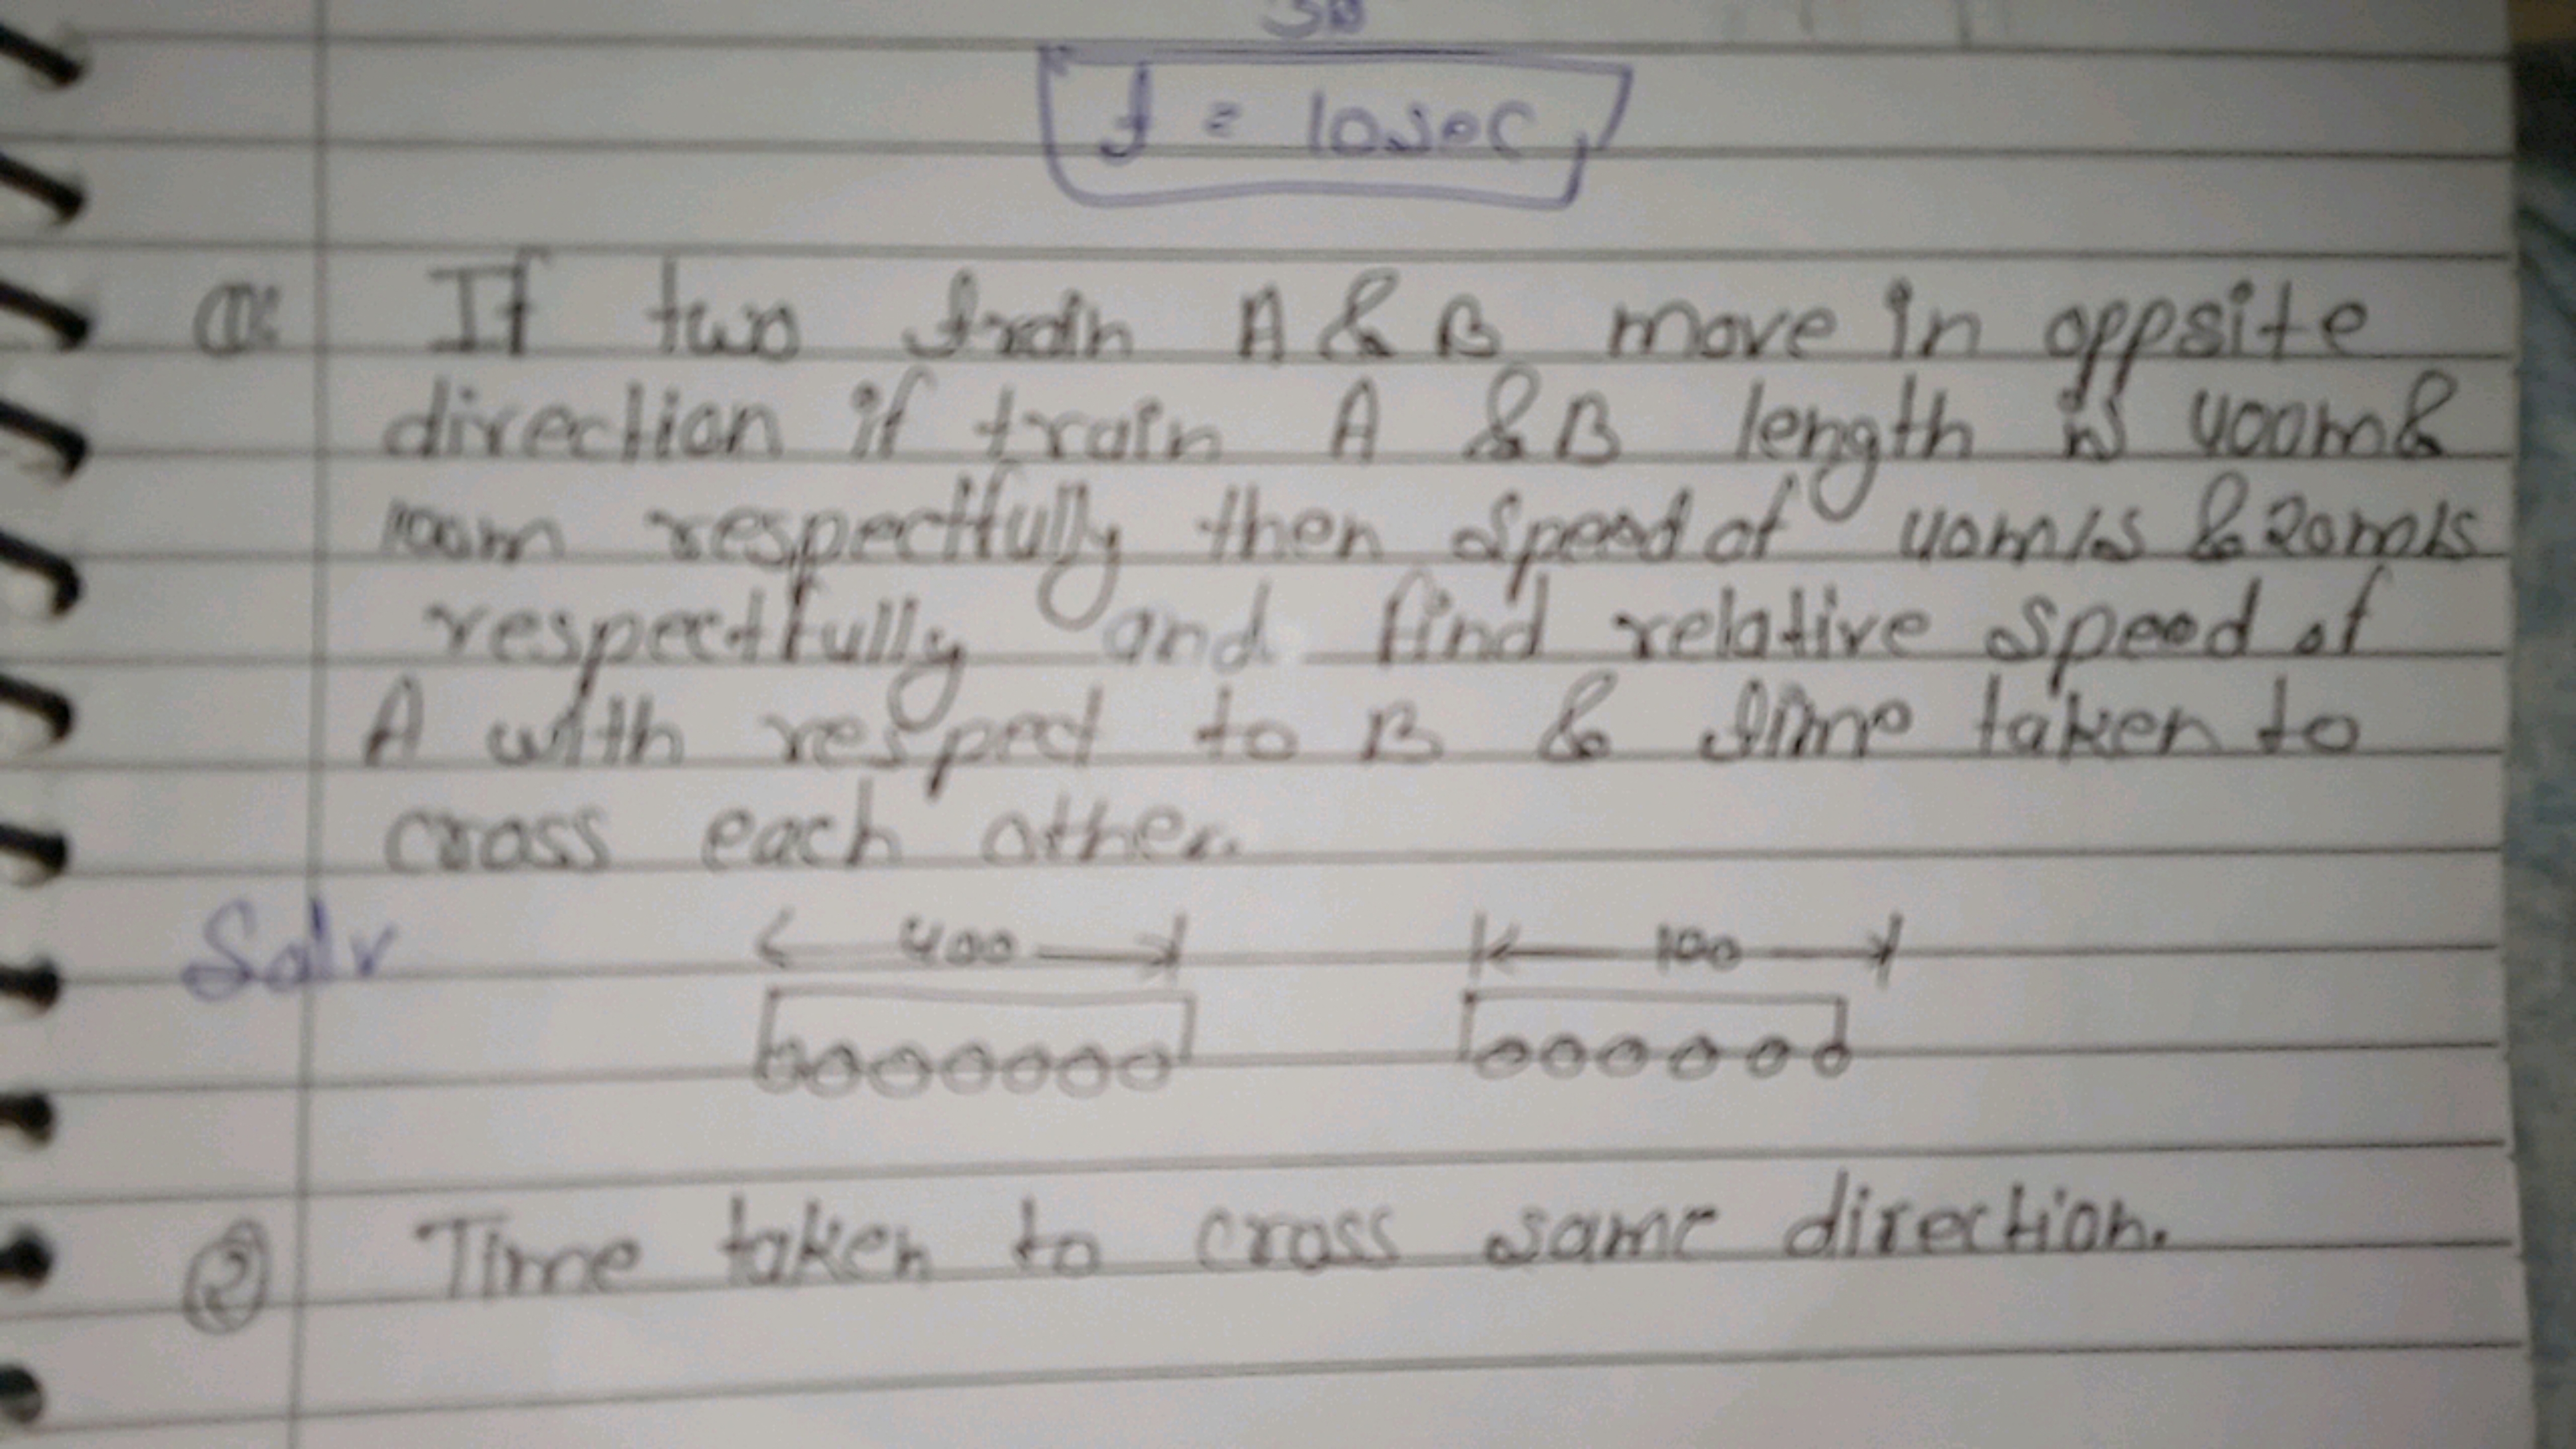 30
t = 10sec
Q: If two train A & B move in oppsite
direction if train A & B length is 400m &
100m respectfully then speed of 40m/s & 20m/s
respectfully and find relative speed of
A with respect to B & time taken to
cross each other.
Solv
400 100
② Time taken to cross same direction.